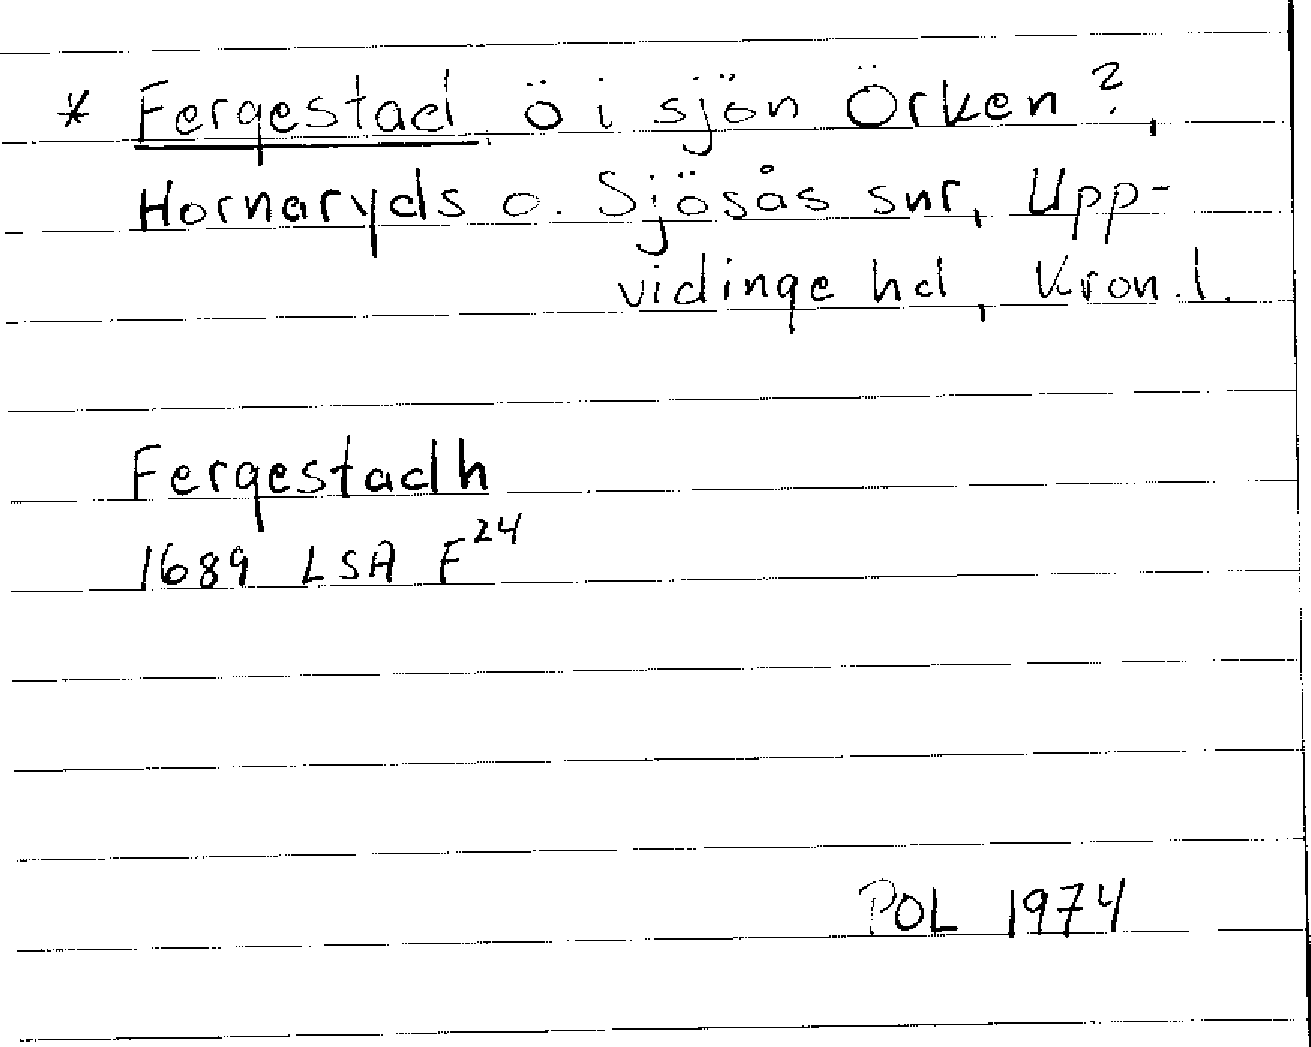 * Fergestad ö i sjön Örken?,
Hornaryds o. Sjösås snr, Upp-
vidinge hd, Kron. l.
Fergestadh
1689 LSA F²⁴
POL 1974